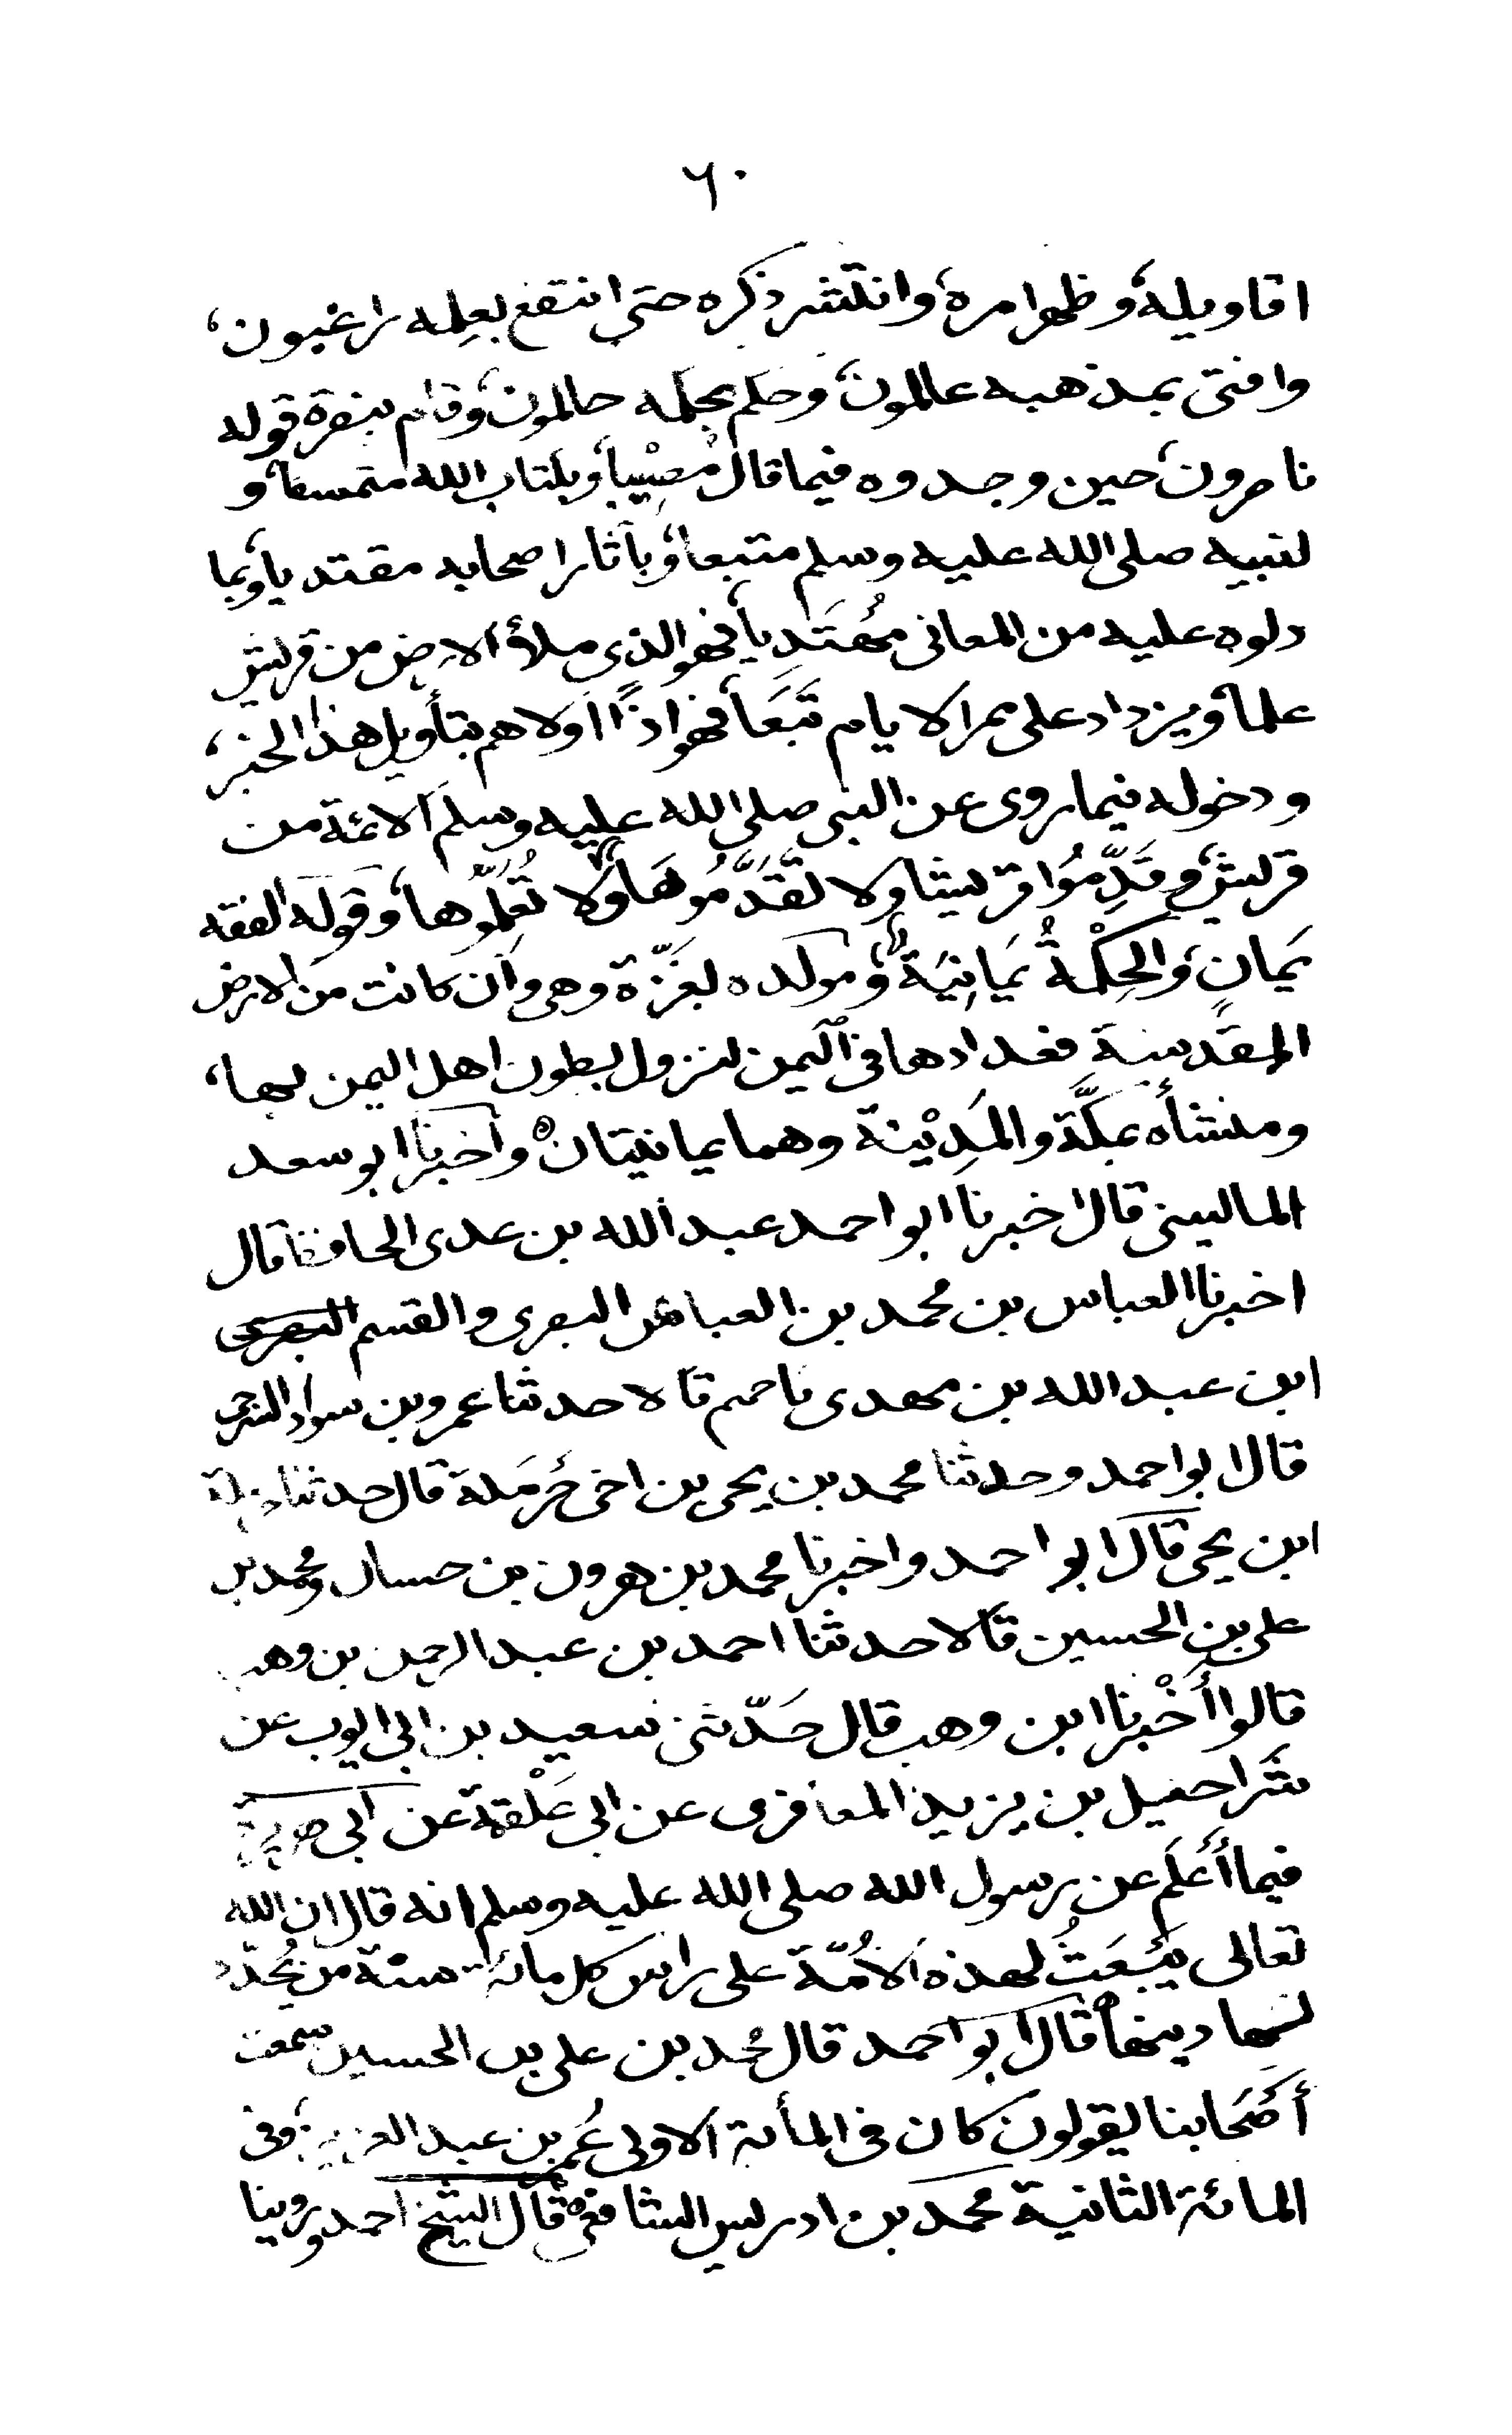 ٦٠
اقاويله، وظهرامره، وانتشر ذكره حتى انتفع بعلمه راغبون،
وافتى بمذهبه عالمون، وحكم بحكمه حاكمون، وقام بنصرة قوله
ناصرون، حين وجدوه فيما قال مصيبا، وبكتاب الله متمسكا، و
لنبيه صلى الله عليه وسلم متبعا، وبآثار اصحابه مقتديا، وبما
دلوه عليه من المعانى مُهتَدِيا، فهو الذى ملأ الارض من قريش
علما، ويزداد على ممر الايام تَبَعَا، فهو اذًا اولاهم بتأويل هذا الخبر،
ودخوله فيما روى عن النبى صلى الله عليه وسلم الائمة من
قريش، وقَدِّمُوا قريشا ولا تَقَدَّمُوهَا، ولا تُعَلِّمُوها، وقوله الفقه
يَمانٍ، والحِكْمةُ يَمَانِيَة، ومولده بغَزّة وهى وان كانت من الارض
المقدسة فعدادها فى اليمن لنزول بطون اهل اليمن بها،
ومنشأه بمكّة والمَدِيْنة وهما يمانيتان، واخبرنا ابو سعد
المالينى قال اخبرنا ابو احمد عبد الله بن عدى الحافظ قال
اخبرنا العباس بن محمد بن العباس البصرى والقسم البصرى
ابن عبد الله بن مهدى باخميم قالا حدثنا عمرو بن سواد السرحى
قال ابو احمد وحدثنا محمد بن يحيى بن اخى حَرمَلة قال حدثنا حرملة
ابن يحيى قال ابو احمد واخبرنا محمد بن هرون بن حسان ومحمد بن
على بن الحسين قالا حدثنا احمد بن عبد الرحمن بن وهب
قالوا أَخْبرنا ابن وهب قال حَدّثنى سعيد بن ابى ايوب عن
شَراحيل بن يزيد المعافرى عن ابى عَلْقمة عن ابى هريرة
فيما أَعْلَم عن رسول الله صلى الله عليه وسلم انه قال ان الله
تعالى يَبْعَثُ لهذه الاُمّة على راس كل مائة سنة من يُجَدّد
لها دينها، قال ابو احمد قال محمد بن على بن الحسين سمعت
أَصْحَابنا يقولون كان فى المأئة الاولى عُمر بن عبد العزيز، وفى
المائة الثانية محمد بن ادريس الشافعى، قال الشيخ احمد وروينا